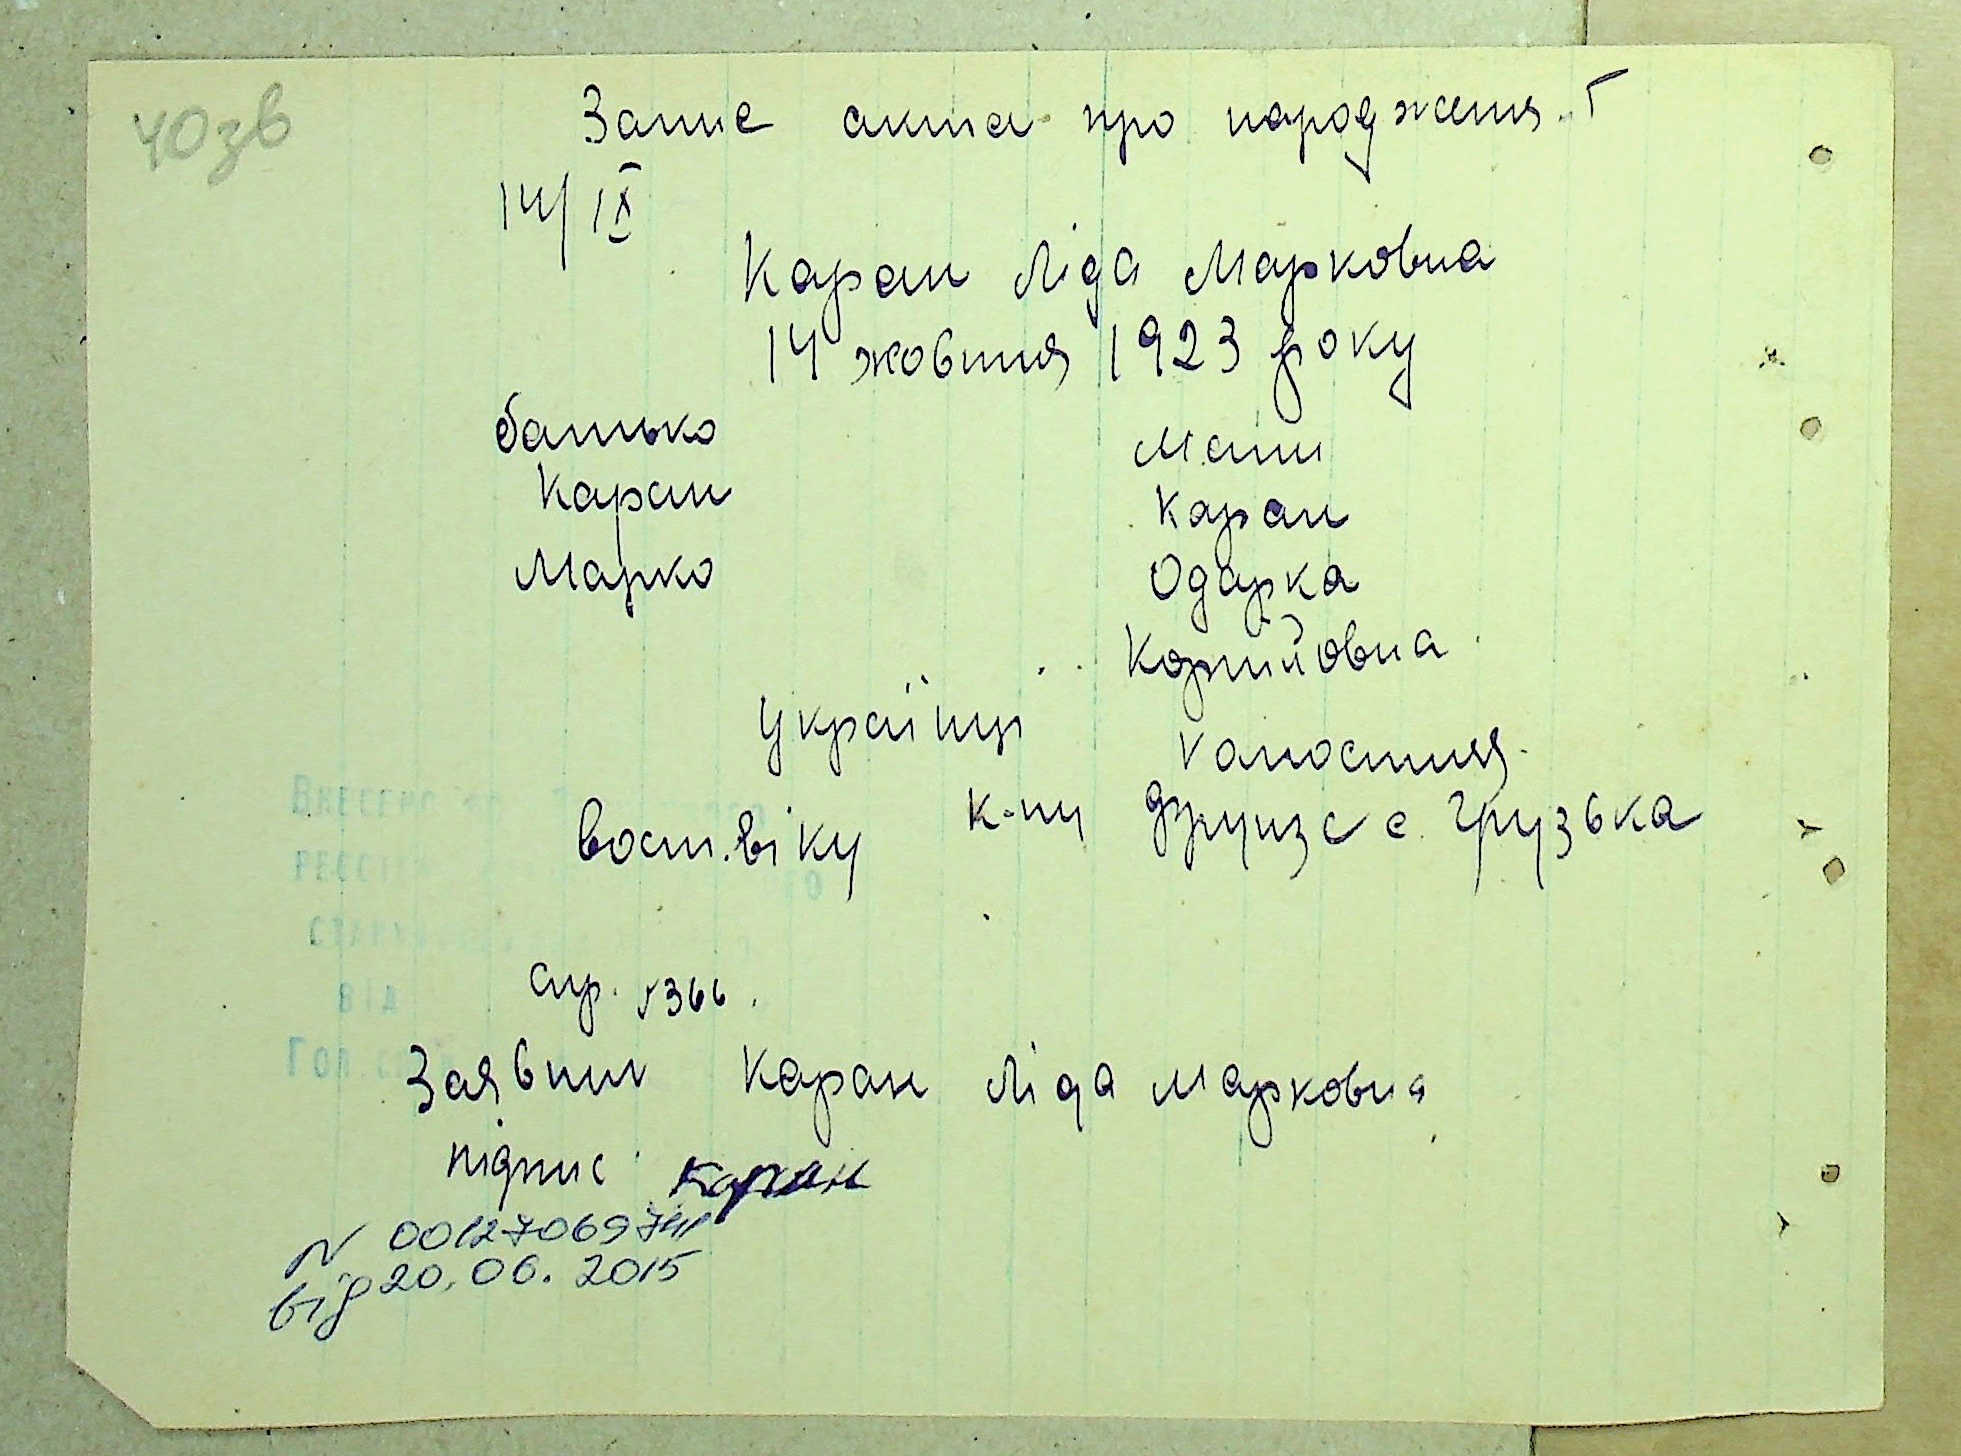 40зв
Запис акта про народження
14/IX
Каран Ліда Марковна
14 жовтня 1923 року
батько мати
Каран Каран
Марко Одарка
Корнійовна
Українці
восм. віку к-пи с. Грузька
Внесено
від
стр. 1366.
Заявник Каран Ліда Марковна
підпис Каран
N 00127069741
від 20.06.2015